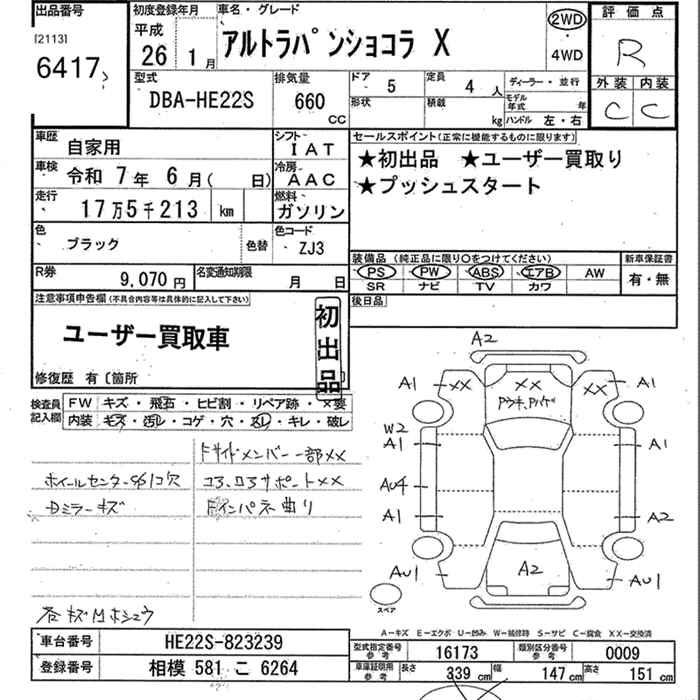 出品番号
[2113]
6417
初度登録年月
平成
26 1月
車名・グレード
アルトラパンショコラ X
2WD
・
4WD
評価点
R
外装 内装
C C
型式
DBA-HE22S
排気量
660
CC
ドア 5
定員 4 人
形状
積載 kg
ディーラー・並行
モデル年式 年
ハンドル 左・右
車歴
自家用
シフト
IAT
車検
令和 7年 6月( 日)
冷房
AAC
走行
17万5千213 km
燃料
ガソリン
色
ブラック
色替
色コード
ZJ3
R券
9,070円
名変通知期限
月 日
セールスポイント(正常に機能するものに限ります)
★初出品 ★ユーザー買取り
★プッシュスタート
装備品 (純正品に限り○をつけてください)
新車保証書
PS PW ABS エアB AW
SR ナビ TV カワ
有・無
後日品
注意事項申告欄(不具合内容等は具体的に記入して下さい)
ユーザー買取車
初出品
修復歴 有〔箇所
検査員記入欄
FW キズ・飛石・ヒビ割・リペア跡・×要
内装 キズ・汚レ・コゲ・穴・スレ・キレ・破レ
Fサイドメンバー一部××
コア、ロアサポート××
Fインパネ曲り
Dミラーキズ
A2
A1 ×× ×× ×× A1
W2
A1 A1
AU4
A1 A2
AU1 A2 AU1
スペア
A−キズ E−エクボ U−凹み W−補修跡 S−サビ C−腐食 XX−交換済
車台番号
HE22S-823239
登録番号
相模 581 こ 6264
型式指定番号
参考
16173
類別区分番号
参考
0009
車庫証明用
参考
長さ 339 cm
幅 147 cm
高さ 151 cm